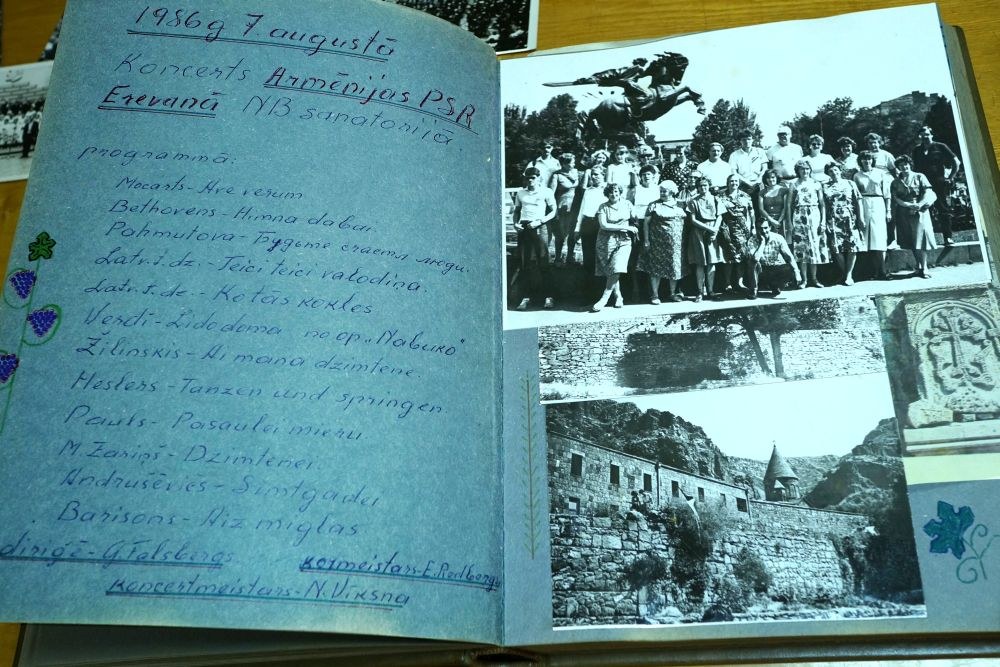 1986g 7 augustā
Koncerts Armēnijas PSR
Erevanā NB sanatorijā.
programmā:
Mocarts - Ave verum
Bethovens - Himna dabai
Pahmutova - Будьте счастл. люди.
Latv.t.dz. - Teici teici valodiņa.
Latv.t.dz. - Kotās kokles
Verdi - Lido doma no op. „Nabuko"
Žilinskis - Ai mana dzimtene.
Heslers - Tanzen und springen.
Pauls - Pasaulei mieru
M. Zariņš - Dzimtenei.
Andruševics - Simtgadei
Barisons - Aiz miglas
diriģē - G.
kormeistars - E. Redbergs
koncertmeistars - N. Vīksna